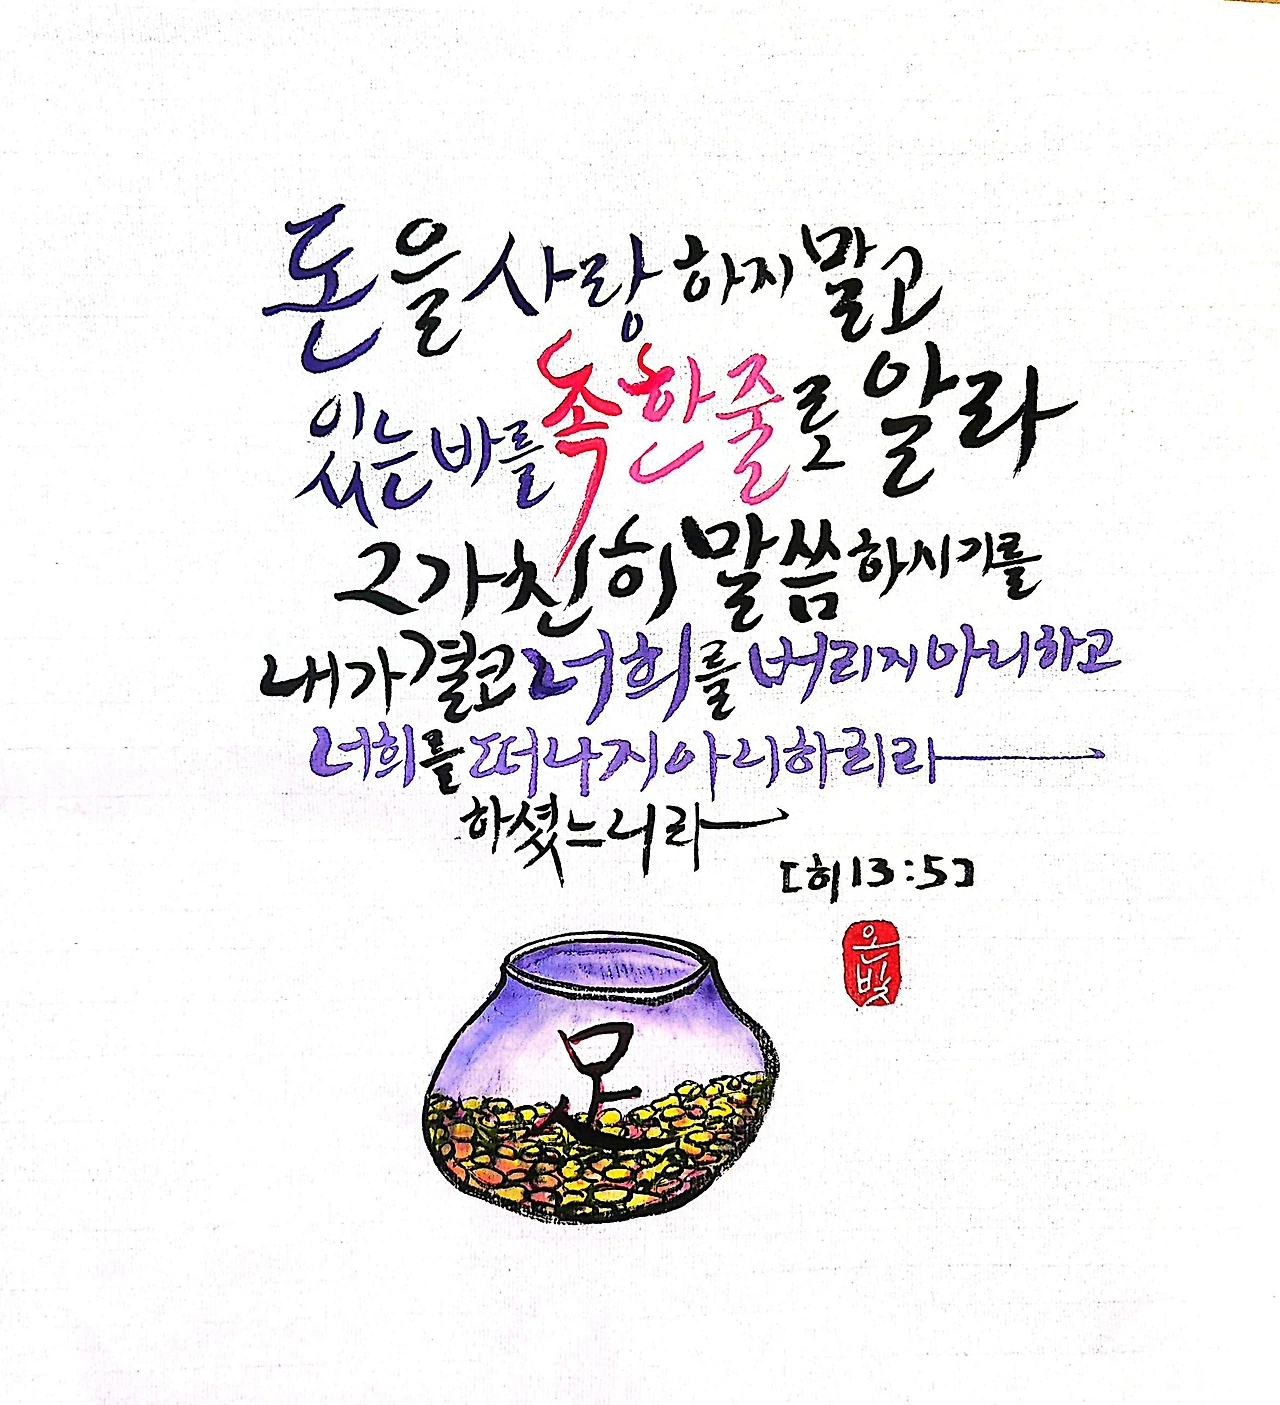 돈을 사랑하지 말고
있는 바를 족한 줄로 알라
그가 친히 말씀하시기를
내가 결코 너희를 버리지 아니하고
너희를 떠나지 아니하리라
하셨느니라
[히 13:5]
足